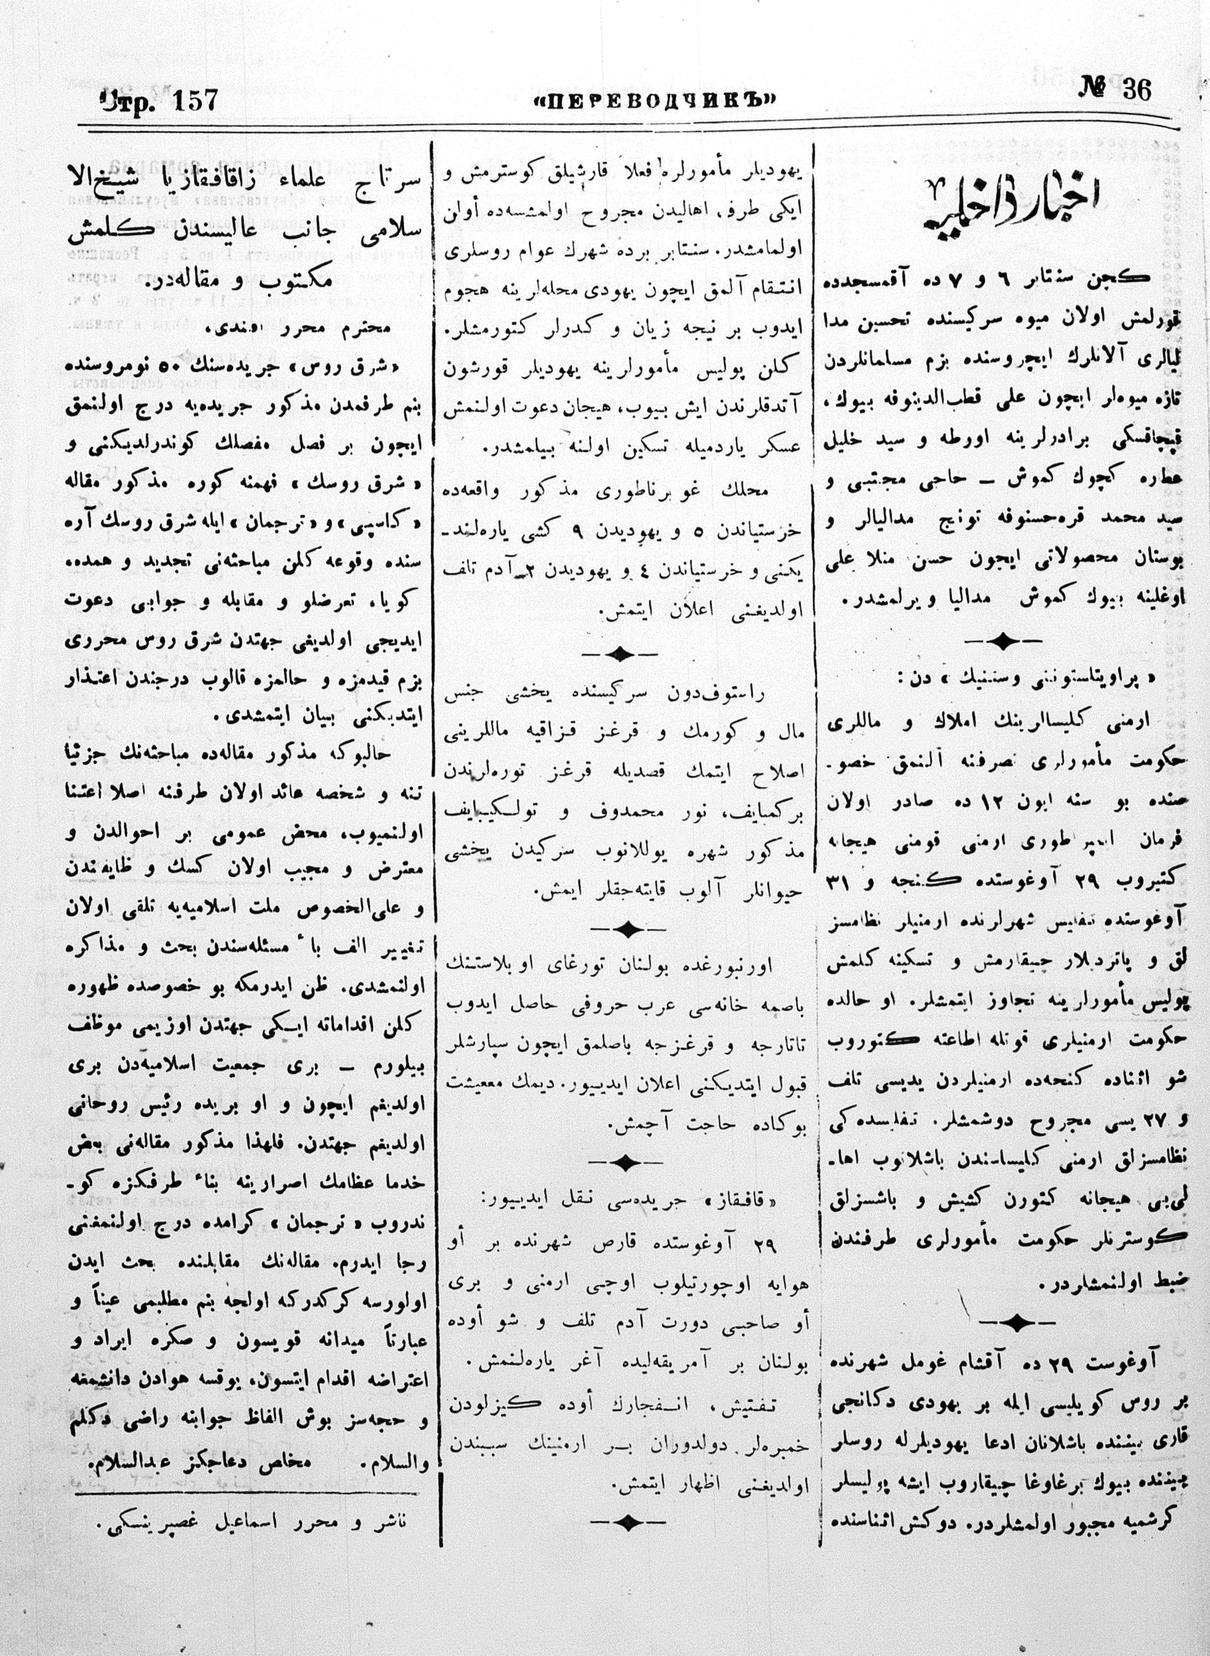 Стр. 157
«ПЕРЕВОДЧИКЪ»
№ 36
اخبار داخلیه
كچن سنتابر ٦ و ٧ ده آقمسجدده
قورلمش اولان میوه سركیسنده تحسین مدا
لیالری آلانلرك ایچروسنده بزم مسلمانلردن
تازه میوه‌لر ایچون علی قطب‌الدینوفه بیوك،
قپچاقسكی برادرلرینه اورطه و سید خلیل
عطاره كچوك كموش ــ حاجی مجتبی و
سید محمد قره‌حسنوفه تونج مدالیالر و
بوستان محصولاتی ایجون حسن منلا علی
اوغلینه بیوك كموش مدالیا ویرلمشدر.
« پراویتلستوننی وستنیك » دن:
ارمنی كلیسالرینك املاك و ماللری
حكومت مأمورلری تصرفنه آلنمق خصو-
صنده بو سنه ایون ١٢ ده صادر اولان
فرمان ایمپراطوری ارمنی قومنی هیجانه
كتیروب ٢٩ آوغوستده كنجه و ٣١
آوغوستده تفلیس شهرلرنده ارمنیلر نظامسز
لق و پاتردیلار چیقارمش و تسكینه كلمش
پولیس مأمورلرینه تجاوز ایتمشلر. او حالده
حكومت ارمنیلری قوتله اطاعته كتوروب
شو اثناده كنجه‌ده ارمنیلردن یدیسی تلف
و ٢٧ یسی مجروح دوشمشلر. تفلیسده‌كی
نظامسزلق ارمنی كلیساسندن باشلانوب اها-
لی‌یی هیجانه كتورن كشیش و باشسزلق
كوسترنلر حكومت مأمورلری طرفندن
ضبط اولنمشلردر.
آوغوست ٢٩ ده آقشام غومل شهرنده
بر روس كویلیسی ایله بر یهودی دكانجی
قاری بیننده باشلانان ادعا یهودیلرله روسلر
بیننده بیوك برغاوغا چیقاروب ایشه پولیسلر
كرشمیه مجبور اولمشلردر. دوكش اثناسنده
یهودیلر مأمورلره فعلاً قارشیلق كوسترمش و
ایكی طرف، اهالیدن مجروح اولمشسه‌ده أولن
اولمامشدر. سنتابر برده شهرك عوام روسلری
انتقام آلمق ایچون یهودی محله‌لرینه هجوم
ایدوب بر نیجه زیان و كدرلر كتورمشلر.
كلن پولیس مأمورلرینه یهودیلر قورشون
آتدقلرندن ایش بیوب، هیجان دعوت اولنمش
عسكر یاردمیله تسكین اولنه بیلمشدر.
محلك غوبرناطوری مذكور واقعه‌ده
خرستیاندن ٥ و یهودیدن ٩ كشی یاره‌لند-
یكنی و خرستیاندن ٤ و یهودیدن ٢ آدم تلف
اولدیغنی اعلان ایتمش.
راستوف‌دون سركیسنده یخشی جنس
مال و كورمك و قرغز قزاقیه ماللرینی
اصلاح ایتمك قصدیله قرغز توره‌لرندن
بركمبایف، نور محمدوف و تولكیبایف
مذكور شهره یوللانوب سركیدن یخشی
حیوانلر آلوب قایته‌جقلر ایمش.
اورنبورغده بولنان تورغای اوبلاستنك
باصمه خانه‌سی عرب حروفی حاصل ایدوب
تاتارجه و قرغزجه باصلمق ایچون سپارشلر
قبول ایتدیكنی اعلان ایدییور. دیمك معیشت
بوكاده حاجت آچمش.
« قافقاز » جریده‌سی نقل ایدییور:
٢٩ آوغوستده قارص شهرنده بر أو
هوایه اوچورتیلوب اوچی ارمنی و بری
أو صاحبی دورت آدم تلف و شو أوده
بولنان بر آمریقه‌لیده آغر یاره‌لنمش.
تفتیش، انفجارك أوده كیزلودن
خمبره‌لر دولدوران بر ارمنینك سببندن
اولدیغنی اظهار ایتمش.
سرتاج علماء زاقافقازیا شیخ‌الا
سلامی جانب عالیسندن كلمش
مكتوب و مقاله‌در.
محترم محرر افندی،
« شرق روس » جریده‌سنك ٥٠ نومروسنده
بنم طرفمدن مذكور جریده‌یه درج اولنمق
ایچون بر فصل مفصلك كوندرلدیكنی و
« شرق روسك » فهمنه كوره مذكور مقاله
« كاسپی » و « ترجمان » ایله شرق روسك آره
سنده وقوعه كلن مباحثه‌نی تجدید و همده،
كویا، تعرضلو و مقابله و جوابی دعوت
ایدیجی اولدیغی جهتدن شرق روس محرری
بزم قیدمزه و حالمزه قالوب درجندن اعتذار
ایتدیكنی بیان ایتمشدی.
حالبوكه مذكور مقاله‌ده مباحثه‌نك جزئیا
تنه و شخصه عائد اولان طرفنه اصلا اعتنا
اولنمیوب، محض عمومی بر احوالدن و
معترض و مجیب اولان كسك و ظایفندن
و علی‌الخصوص ملت اسلامیه‌یه تلقی اولان
تغییر الف باء مسئله‌سندن بحث و مذاكره
اولنمشدی. ظن ایدرمكه بو خصوصده ظهوره
كلن اقداماته ایكی جهتدن اوزیمی موظف
بیلورم ــ بری جمعیت اسلامیه‌دن بری
اولدیغم ایچون و او بریده رئیس روحانی
اولدیغم جهتدن. فلهذا مذكور مقاله‌نی بعض
خدما عظامك اصرارینه بناء طرفكزه كو-
ندروب « ترجمان » كرامده درج اولنمغنی
رجا ایدرم. مقاله‌نك مقابلنده بحث ایدن
اولورسه كركدركه اولجه بنم مطلبمی عیناً و
عبارتاً میدانه قویسون و صكره ایراد و
اعتراضه اقدام ایتسون، یوقسه هوادن دانشمغه
و حجه‌سز بوش الفاظ جوابنه راضی دكلم
والسلام. مخلص دعاجكز عبدالسلام.
ناشر و محرر اسماعیل غصپرینسكی.